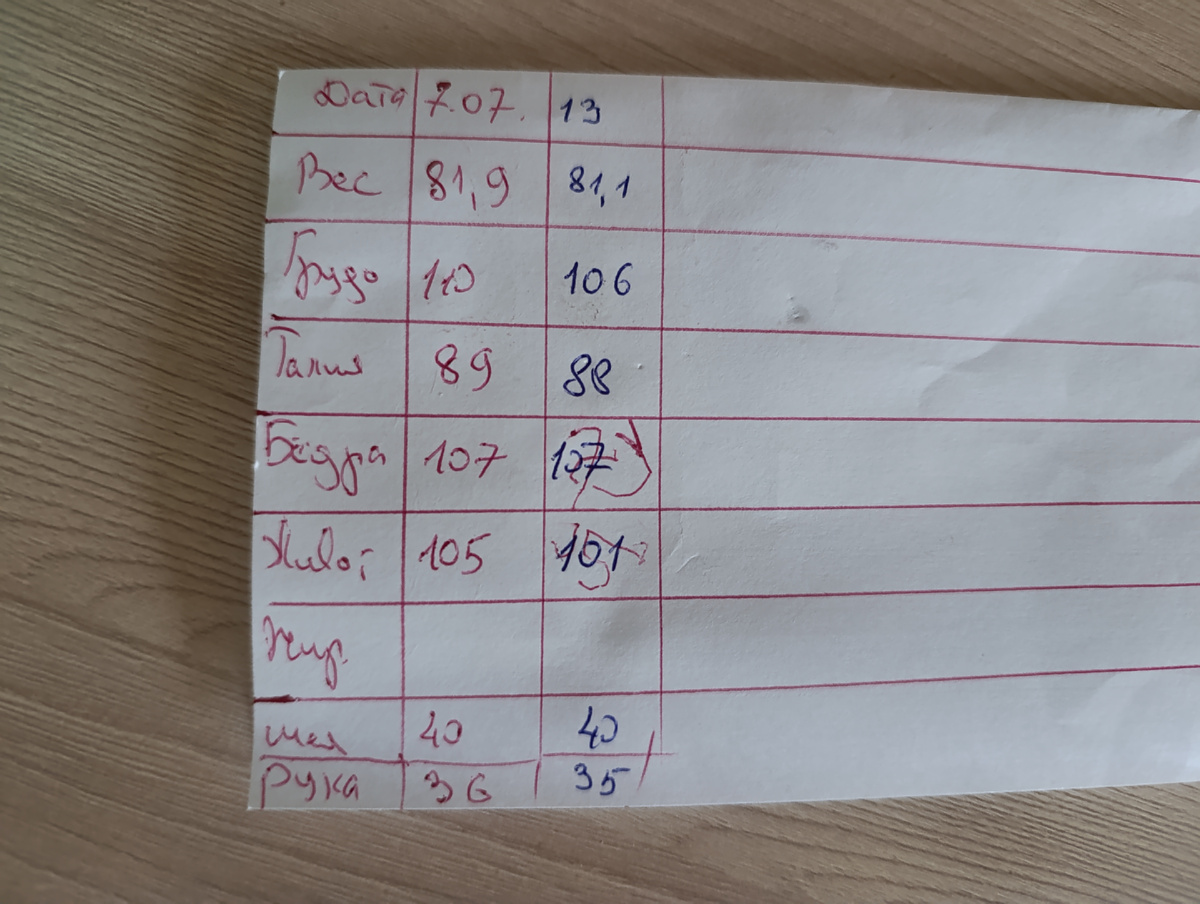 Дата 7.07. 13
Вес 81,9 81,1
Грудь 110 106
Талия 89 88
Бёдра 107 107
Живот 105 101
Жир.
шея 40 40
Рука 36 35